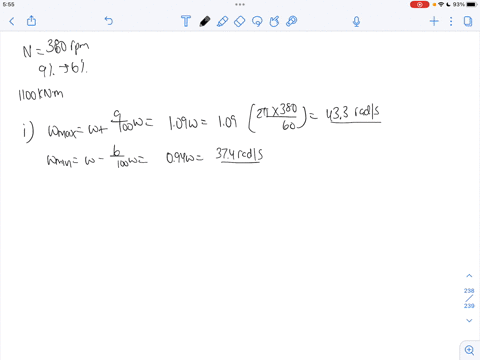 5:55
93%
N = 380 rpm
9% → 6%
1100 kNm
i) ωmax = ω + 9/100 ω = 1.09ω = 1.09 (2π × 380 / 60) = 43.3 rad/s
ωmin = ω − 6/100 ω = 0.94ω = 37.4 rad/s
238
239